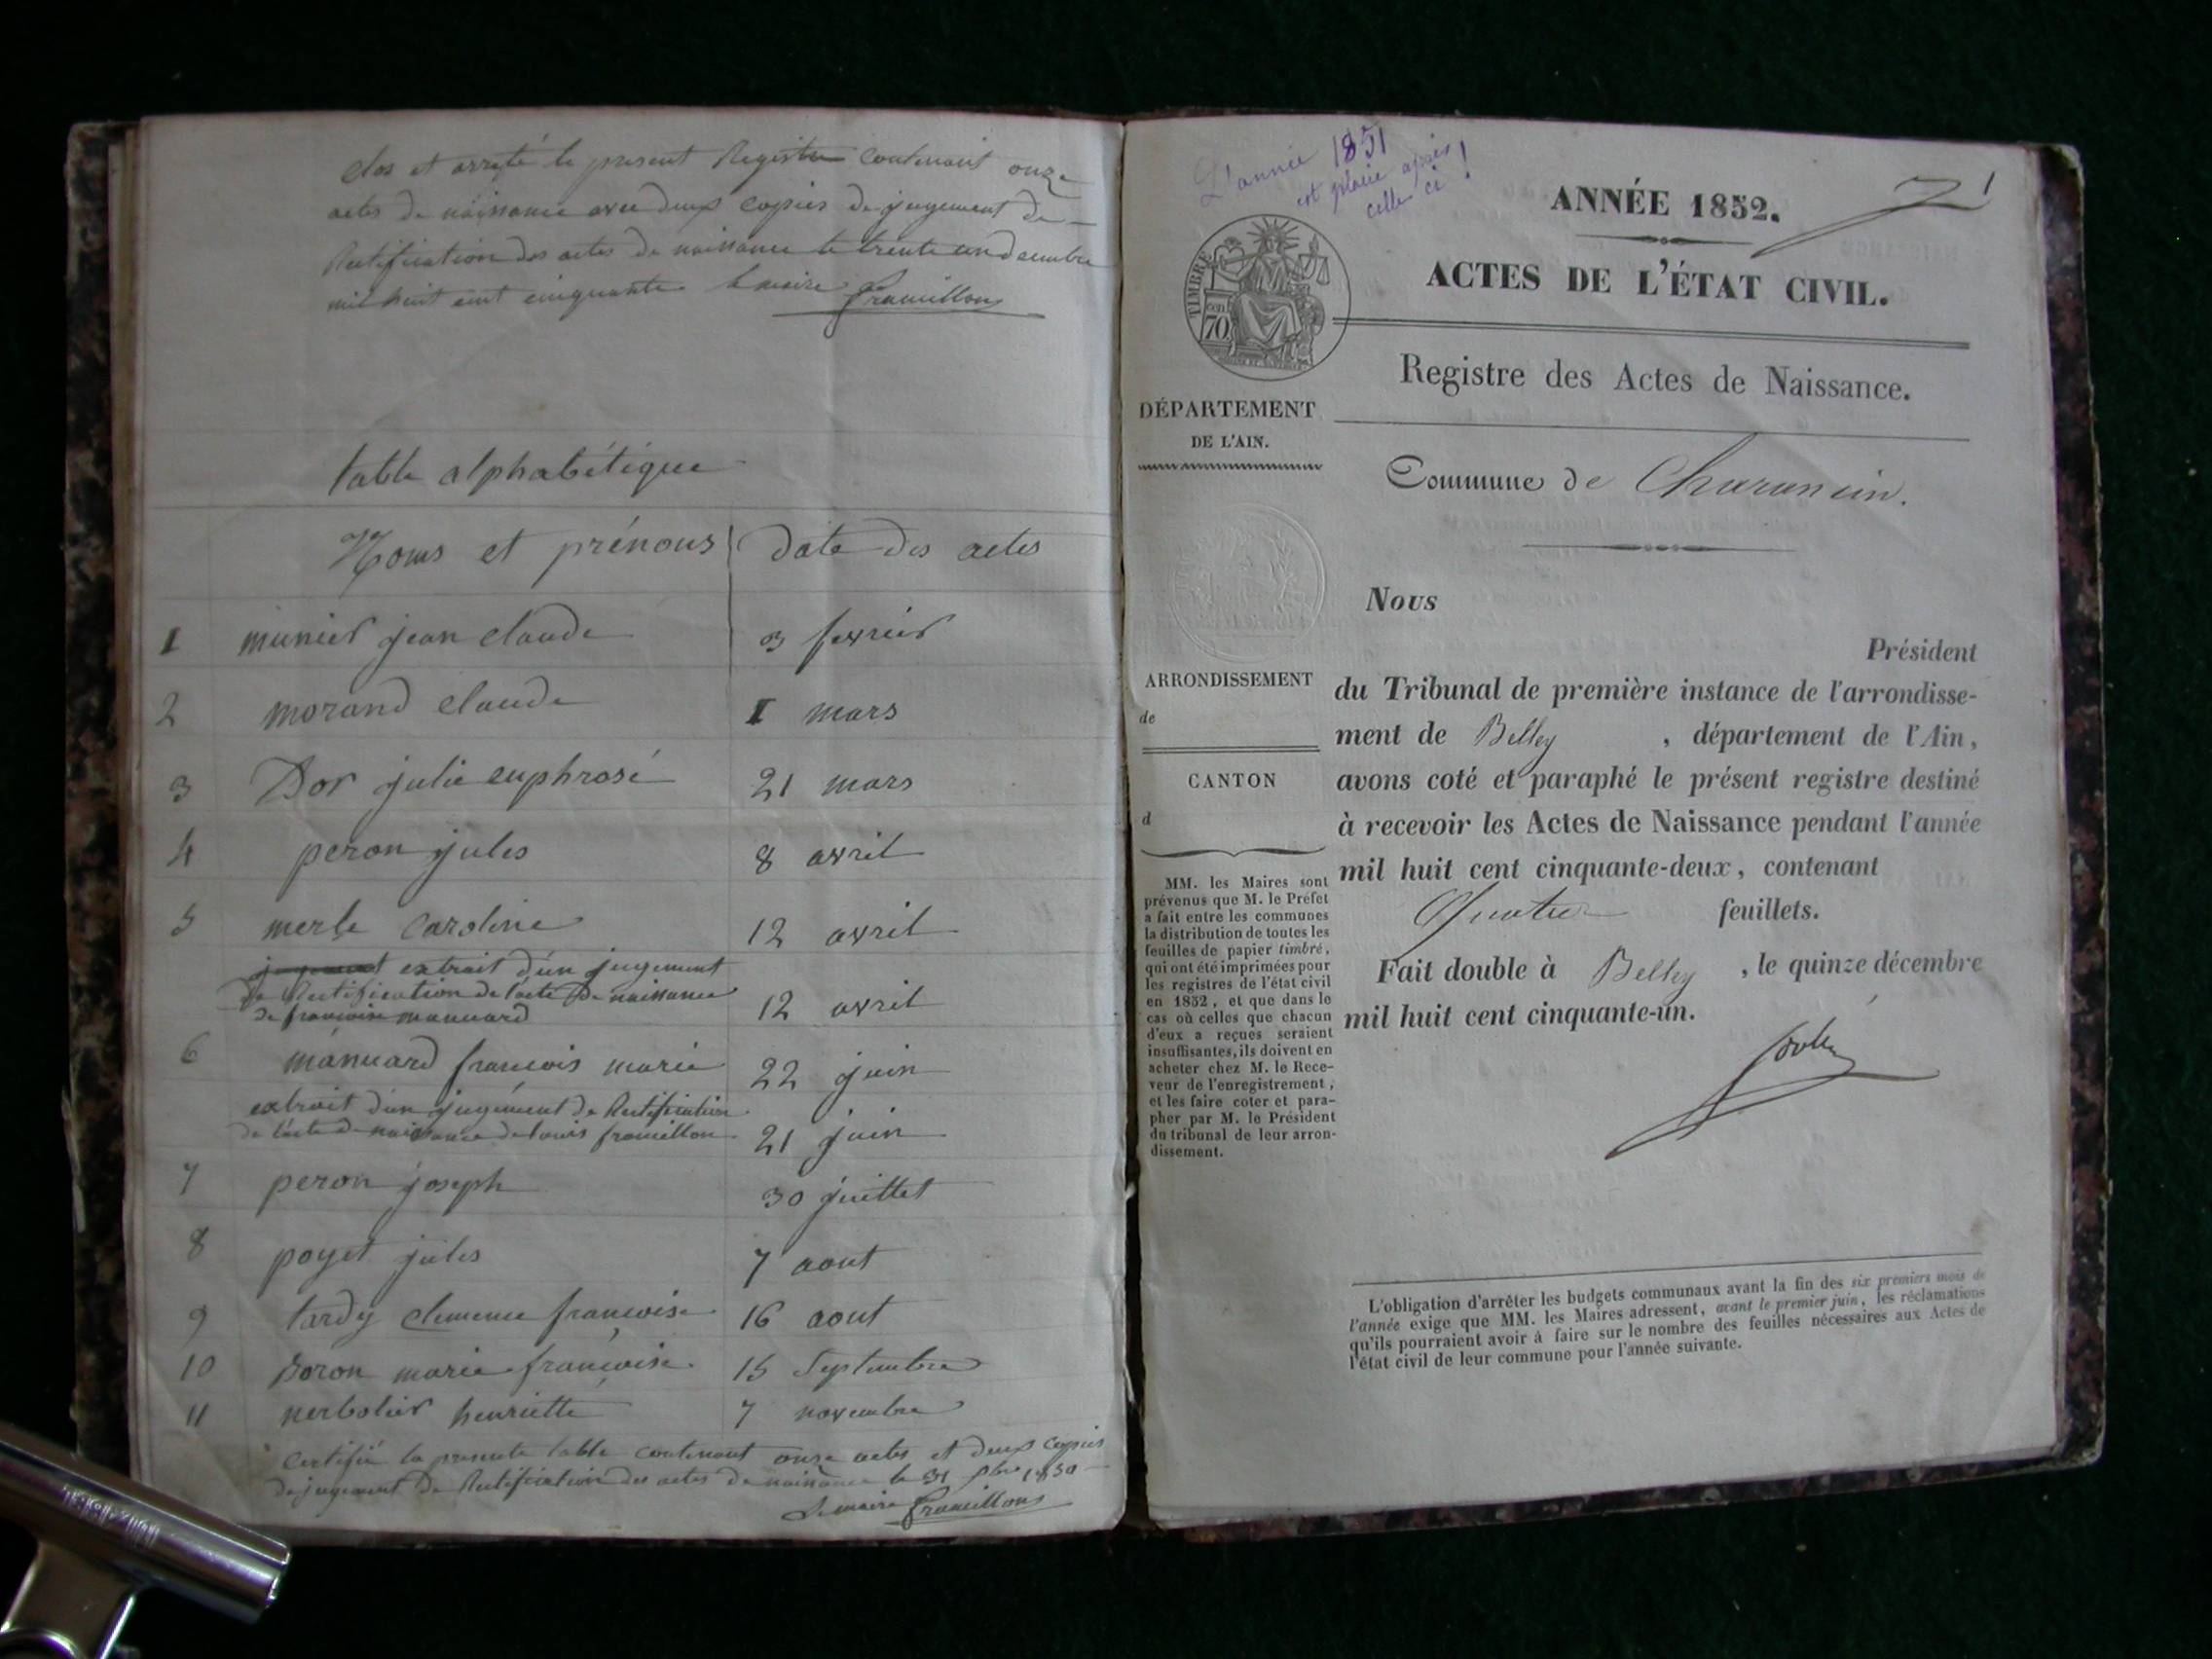 clos et arreté le present Registre Contenant onze
actes de naissance avec deux copies de jugement de
Rectification des actes de naissance le trente un decembre
mil huit cent cinquante le maire
table alphabétique
Noms et prénoms Date des actes
1 munier jean claude 3 fevrier
2 morand claude 1 mars
3 Dor julie euphrosé 21 mars
4 peron jules 8 avril
5 merle caroline 12 avril
extrait d'un jugement
de Rectification de l'acte de naissance
de françoise manuard 12 avril
6 manuard françois marie 22 juin
extrait d'un jugement de Rectification
de l'acte de naissance de louis framillon 21 juin
7 peron joseph 30 juillet
8 poyet jules 7 aout
9 tardy clemence françoise 16 aout
10 Doron marie françoise 15 Septembre
11 nerbolier henriette 7 novembre
Certifié la presente table contenant onze actes et deux copies
de jugement de Rectification des actes de naissance le 31 xbre 1850
Le maire
L'année 1851
est placée après
celle ci !
1
ANNÉE 1852.
ACTES DE L'ÉTAT CIVIL.
TIMBRE
70
Registre des Actes de Naissance.
DÉPARTEMENT
DE L'AIN.
Commune de Charancin.
Nous
Président
ARRONDISSEMENT
de
CANTON
d
du Tribunal de première instance de l'arrondisse-
ment de Belley, département de l'Ain,
avons coté et paraphé le présent registre destiné
à recevoir les Actes de Naissance pendant l'année
mil huit cent cinquante-deux, contenant
Quatre feuillets.
Fait double à Belley, le quinze décembre
mil huit cent cinquante-un.
MM. les Maires sont
prévenus que M. le Préfet
a fait entre les communes
la distribution de toutes les
feuilles de papier timbré,
qui ont été imprimées pour
les registres de l'état civil
en 1852, et que dans le
cas où celles que chacun
d'eux a reçues seraient
insuffisantes, ils doivent en
acheter chez M. le Rece-
veur de l'enregistrement,
et les faire coter et para-
pher par M. le Président
du tribunal de leur arron-
dissement.
L'obligation d'arrêter les budgets communaux avant la fin des six premiers mois de
l'année exige que MM. les Maires adressent, avant le premier juin, les réclamations
qu'ils pourraient avoir à faire sur le nombre des feuilles nécessaires aux Actes de
l'état civil de leur commune pour l'année suivante.